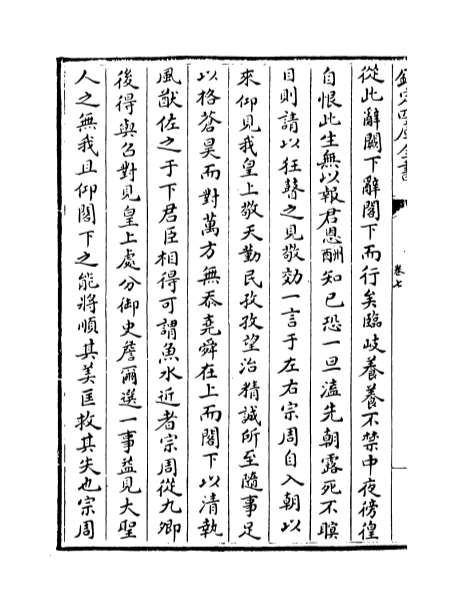 欽定四庫全書
卷七
從此辭闕下辭閣下而行矣臨岐養養不禁中夜徬徨
自恨此生無以報君恩酬知己恐一旦溘先朝露死不瞑
目則請以狂瞽之見敬効一言于左右宗周自入朝以
來仰見我皇上敬天勤民孜孜望治精誠所至隨事足
以格蒼昊而對萬方無忝堯舜在上而閣下以清執
風猷佐之于下君臣相得可謂魚水近者宗周從九卿
後得與召對見皇上處分御史詹爾選一事益見大聖
人之無我且仰閣下之能將順其美匡救其失也宗周